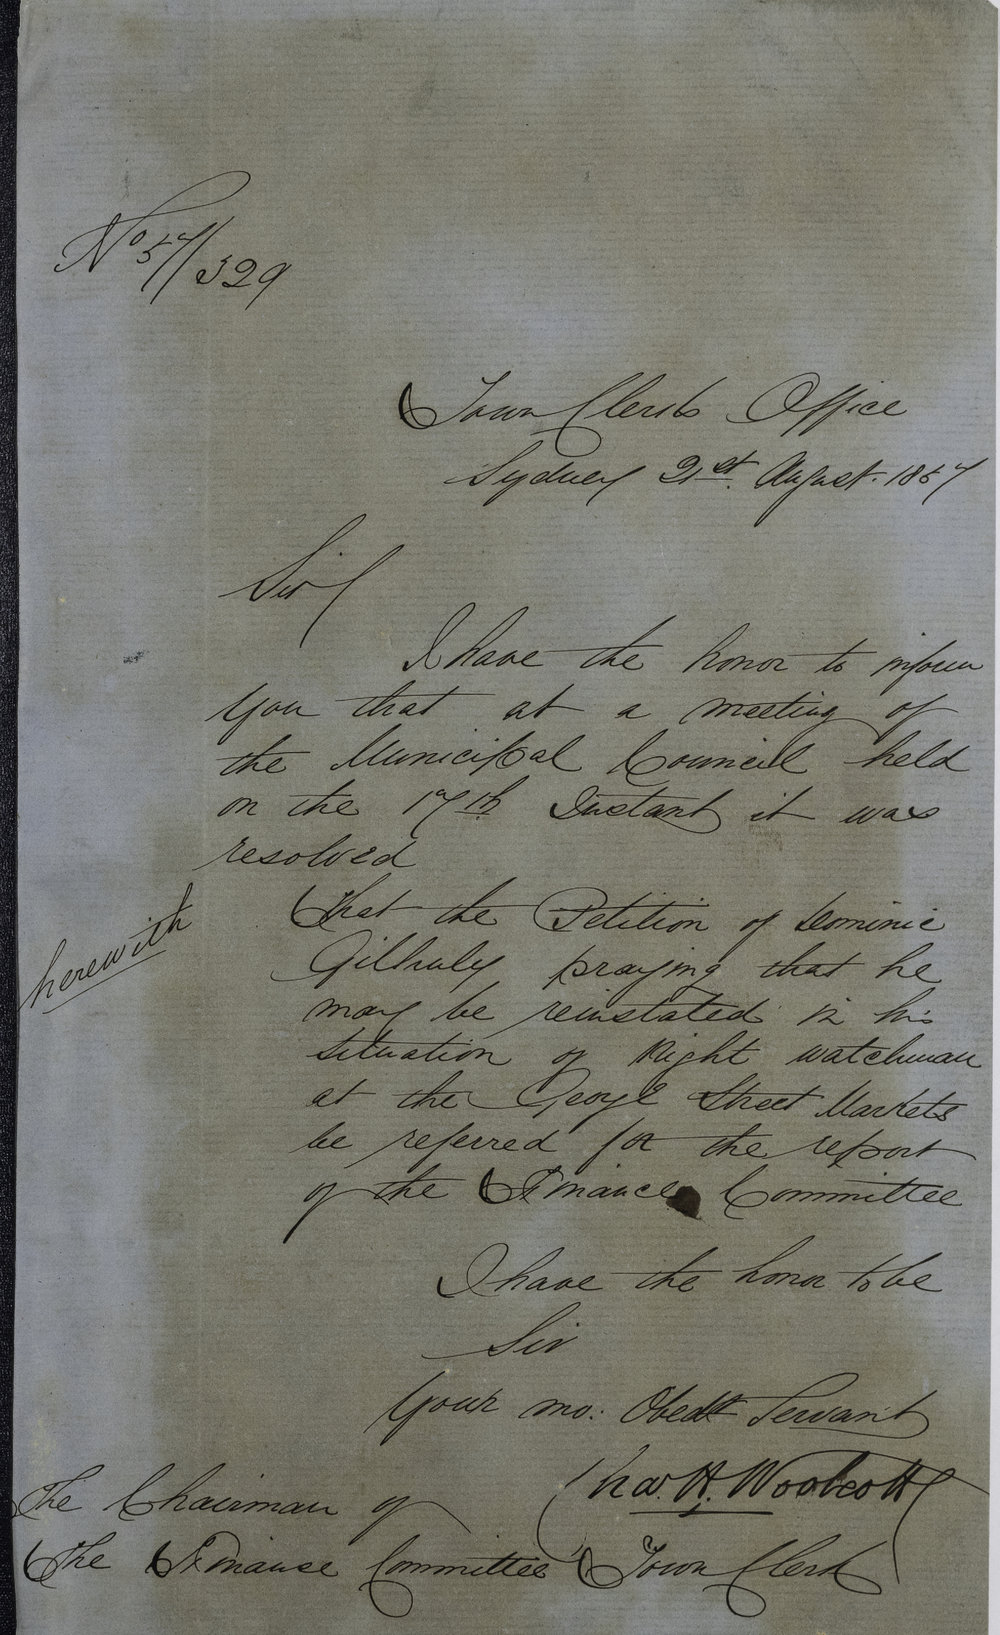 No 57/329
Town Clerks Office
Sydney 21st. August. 1857
Sir
I have the honor to inform
you that at a meeting of
the Municipal Council held
on the 17th Instant it was
resolved
herewith
That the Petition of Dominic
Gilhuly praying that he
may be reinstated in his
situation of Night watchman
at the George Street Markets
be referred for the report
of the Finance Committee
I have the honor to be
Sir
Your mo: Obedt Servant
Chas. H. Woolcott
Town Clerk
The Chairman of
The Finanse Committee